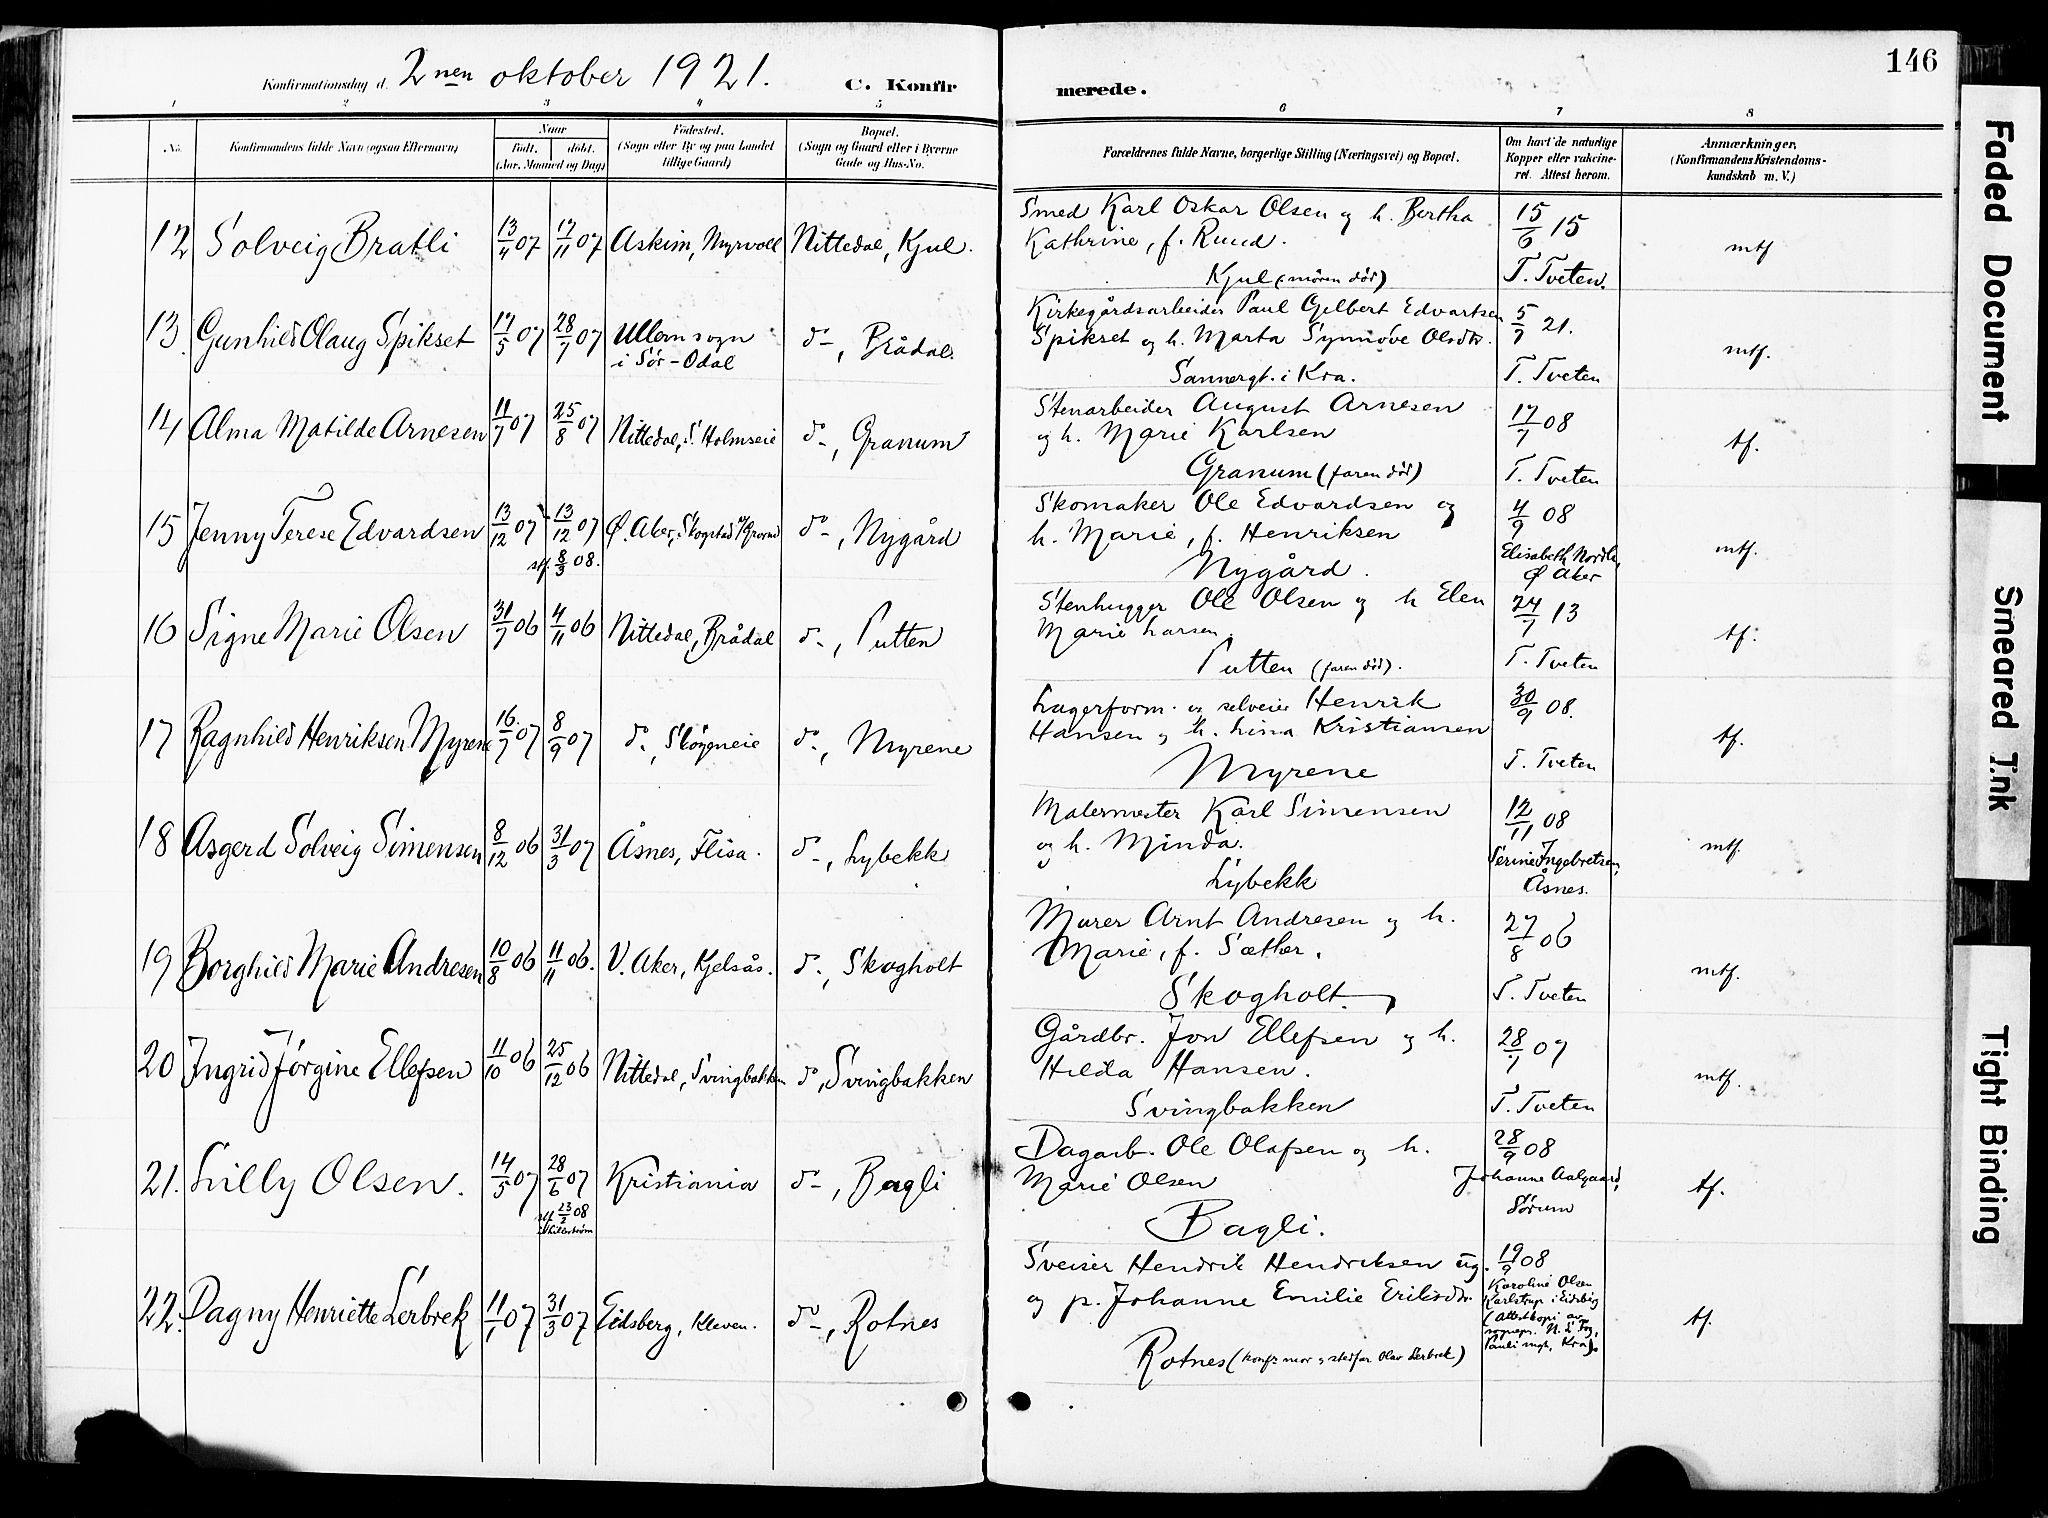 146
Konfirmationsdag d. 2nen oktober 1921. C. Konfir merede.
1 2 3 4 5 6 7 8
No. Konfirmandens fulde Navn (ogsaa Efternavn) Naar Födt. döbt. (Aar, Maaned og Dag) Födested. (Sogn eller By og paa Landet tillige Gaard) Bopæl. (Sogn og Gaard eller i Byerne Gade og Hus-No. Forældrenes fulde Navne, borgerlige Stilling (Næringsvei) og Bopæl. Om havt de naturlige Kopper eller vakcineret. Attest herom. Anmærkninger. (Konfirmandens Kristendomskundskab m. V.)
12 Solveig Bratli 13/4 07 17/11 07 Askim, Myrvoll Nittedal, Kjul. Smed Karl Oskar Olsen og h. Bertha 15/6 15 mtf
Kathrine, f. Ruud.
Kjul (moren död) T. Tveten.
13. Gunhild Olaug Spikset 17/5 07 28/7 07 Ullern sogn i Sör-Odal do, Brådal. Kirkegårdsarbeider Paul Gilbert Edvartsen 5/7 21. mtf.
Spikset og h. Marta Synnöve Olsdtr.
Sannergt. i Kra. T. Tveten
14 Alma Matilde Arnesen 11/7 07 25/8 07 Nittedal, S. Holmseie do, Granum Stenarbeider August Arnesen 17/7 08 tf.
og h. Marie Karlsen
Granum (faren död) T. Tveten
15 Jenny Terese Edvardsen 13/12 07 13/12 07 Ø. Aker, Skogstad do, Nygård Skomaker Ole Edvardsen og 4/9 08 mtf.
stf. 8/3 08. h. Marie, f. Henriksen Elisabeth
Nygård. Ø Aker
16 Signe Marie Olsen 31/7 06 4/11 06 Nittedal, Brådal do, Putten Stenhugger Ole Olsen og h Elen 24/7 13 tf.
Marie Larsen.
Putten (faren död). T. Tveten
17 Ragnhild Henriksen Myrene 16/7 07 8/9 07 do, Skögeneie do, Myrene Lagerform. og selveier Henrik 30/9 08. tf.
Hansen og h. Lina Kristiansen
Myrene T. Tveten
18 Asgerd Solveig Simensen 8/12 06 31/3 07 Åsnes, Flisa. do, Lybekk Malermester Karl Simensen 12/11 08 mtf.
og h. Minda. Serine Ingebretsen,
Lybekk Åsnes.
19 Borghild Marie Andresen 10/8 06 11/11 06. V. Aker, Kjelsås. do, Skogholt Murer Arnt Andresen og h. 27/8 06 mtf.
Marie, f. Sæther.
Skogholt. T. Tveten
20 Ingrid Jörgine Ellefsen 11/10 06 25/12 06 Nittedal, Svingbakken do, Svingbakken Gårdbr. Jon Ellefsen og h. 28/7 07 mtf.
Hilda Hansen.
Svingbakken T. Tveten
21. Lilly Olsen. 14/5 07 28/6 07 Kristiania do, Bagli Dagarb. Ole Olafsen og h. 28/9 08 tf.
stf 23/2 08 Marie Olsen Johanne Aalgaard,
Bagli. Sörum
22. Dagny Henriette Lerbrek 11/1 07 31/3 07 Eidsberg, Kleven. do, Rotnes Sveiser Hendrik Hendriksen ug. 19/9 08 tf.
og p. Johanne Emilie Eriksdtr. Karoline Olsen
Karlstrup i Eidsbg
(Attestkopi av
Rotnes (Konf. mor og stedfar Olav Lerbrek) Pauli mgh, Kra).
Faded Document
Smeared Ink
Tight Binding